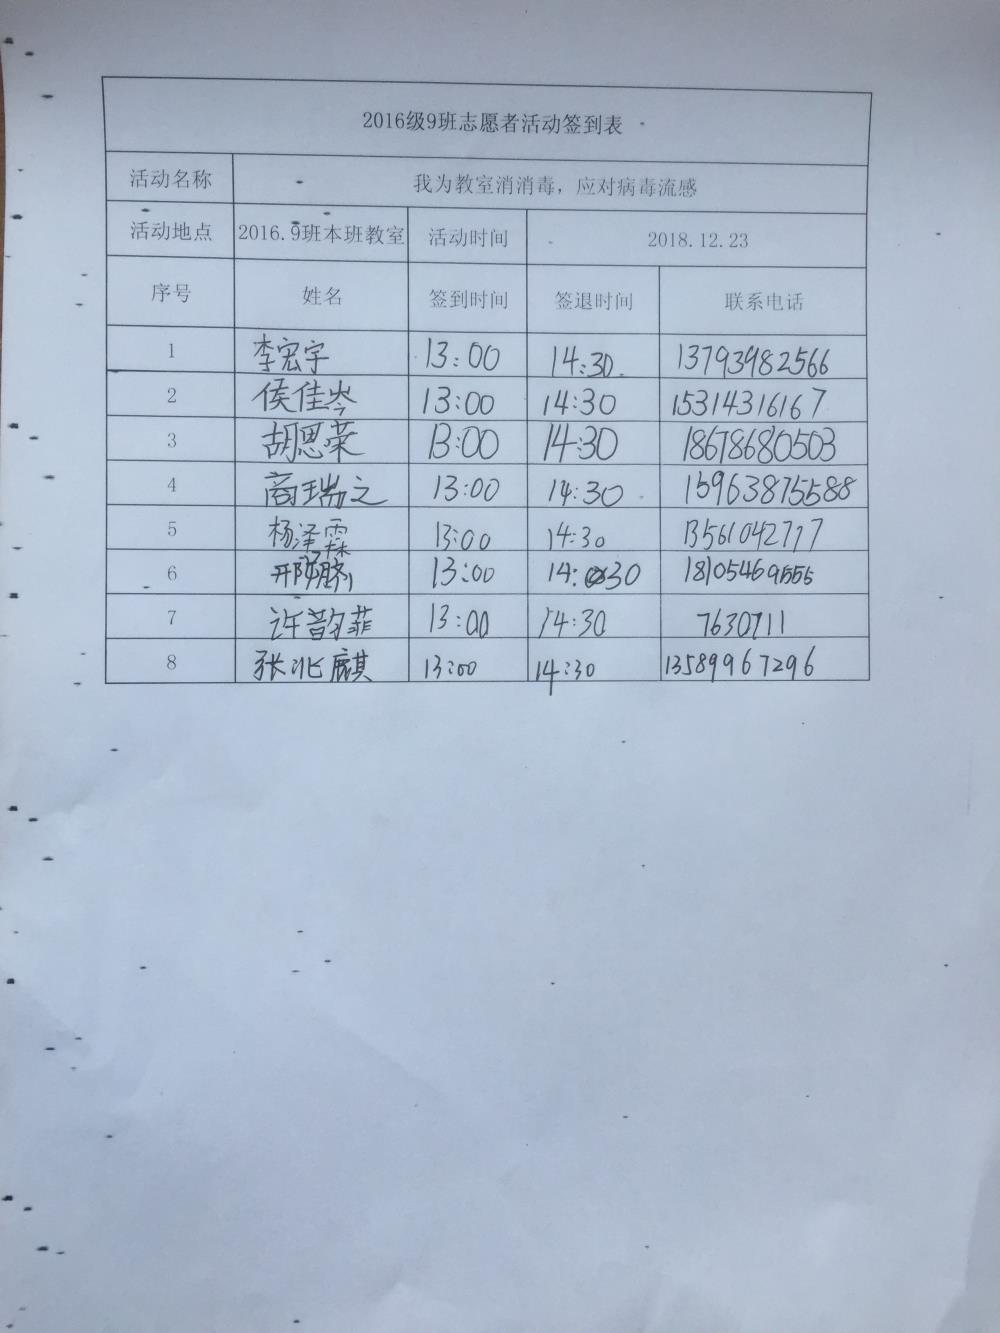 2016级9班志愿者活动签到表
活动名称 我为教室消消毒，应对病毒流感
活动地点 2016.9班本班教室 活动时间 2018.12.23
序号 姓名 签到时间 签退时间 联系电话
1 李宏宇 13:00 14:30 13793982566
2 侯佳岑 13:00 14:30 15314316167
3 胡思荣 13:00 14:30 18678680503
4 商瑞之 13:00 14:30 15963875588
5 杨泽霖 13:00 14:30 13561042717
6 13:00 14:30 18105469555
7 许韵菲 13:00 14:30 7630711
8 张兆麒 13:00 14:30 13589967296